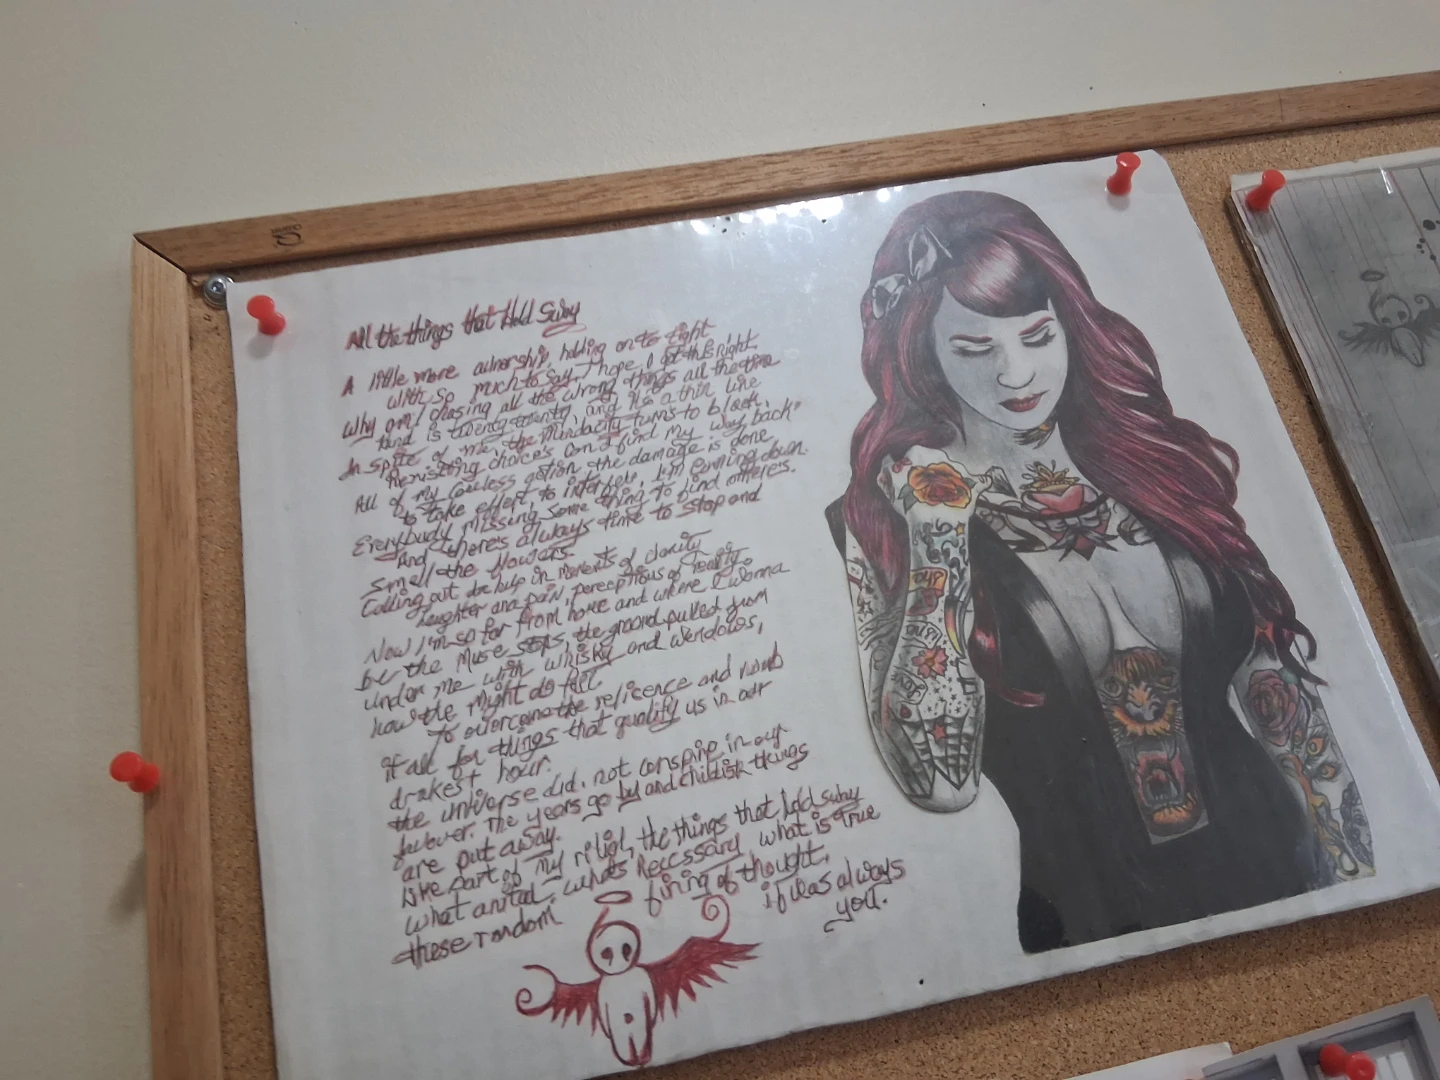 All the things that Hold Sway
A little more ownership, holding on to tight
with so much to say, I hope I got this right.
Why am I chasing all the wrong things all the time
is twenty twenty and it's a thin line
In spite of me, the turns to black,
choices can't find my way back.
All of my action, the damage is done
to take effect, to I'm coming down.
Everybody missing some thing to bind
And there's always time to stop and
smell the flowers.
Calling out for help in moments of clarity
laughter and pain, perceptions of reality.
Now I'm so far from home and where I wanna
be the Muse stops, the ground pulled from
under me with whisky and wendows,
how the might do fall.
To the reticence and
it all for things that qualify us in our
drakest hour.
the universe did. not conspire in our
The years go by and childish things
are put away.
Like part of my the things that hold sway
what necssary what is true
these random firing of thought,
it was always
you.